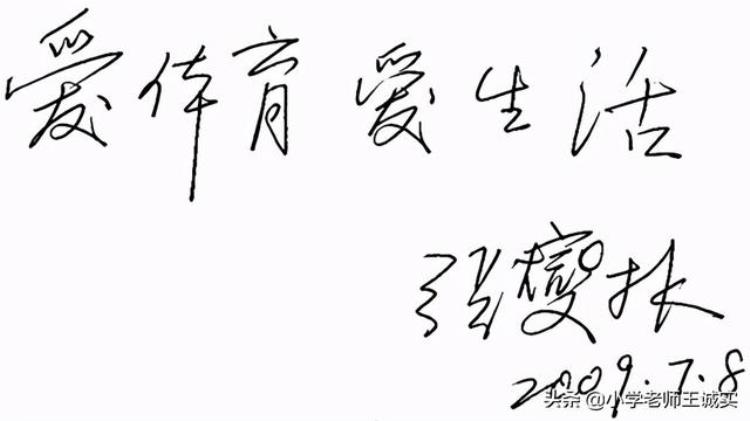 爱体育 爱生活
张燮林
2009.7.8
头条 @小学老师王诚实